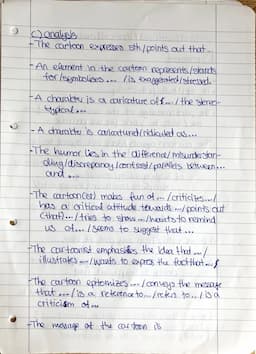 c) analysis
-The cartoon expresses sth/points out that...
-An element in the cartoon represents/stands
for/symbolises ... /is exaggerated/stressed
-A character is a caricature of... /the stereo-
typical...
-A character is caricatured/ridiculed as...
-The humor lies in the difference/misunderstan-
ding/discrepancy/contrast/parallels between...
and ...
-The cartoon(ist) makes fun of.../criticizes.../
has a critical attitude towards.../points out
(that).../tries to show.../wants to remind
us of.../seems to suggest that...
-The cartoonist emphasizes the idea that.../
illustrates.../wants to express the fact that...
-The cartoon epitomizes.../conveys the message
that .../is a reference to.../refers to.../is a
criticism of...
-The message of the cartoon is